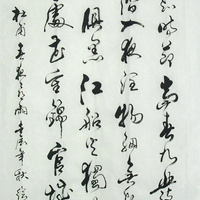 知時節當春乃發
潛入夜潤物細無
俱黑江船火獨
處花重錦官城
杜甫春夜喜雨年秋